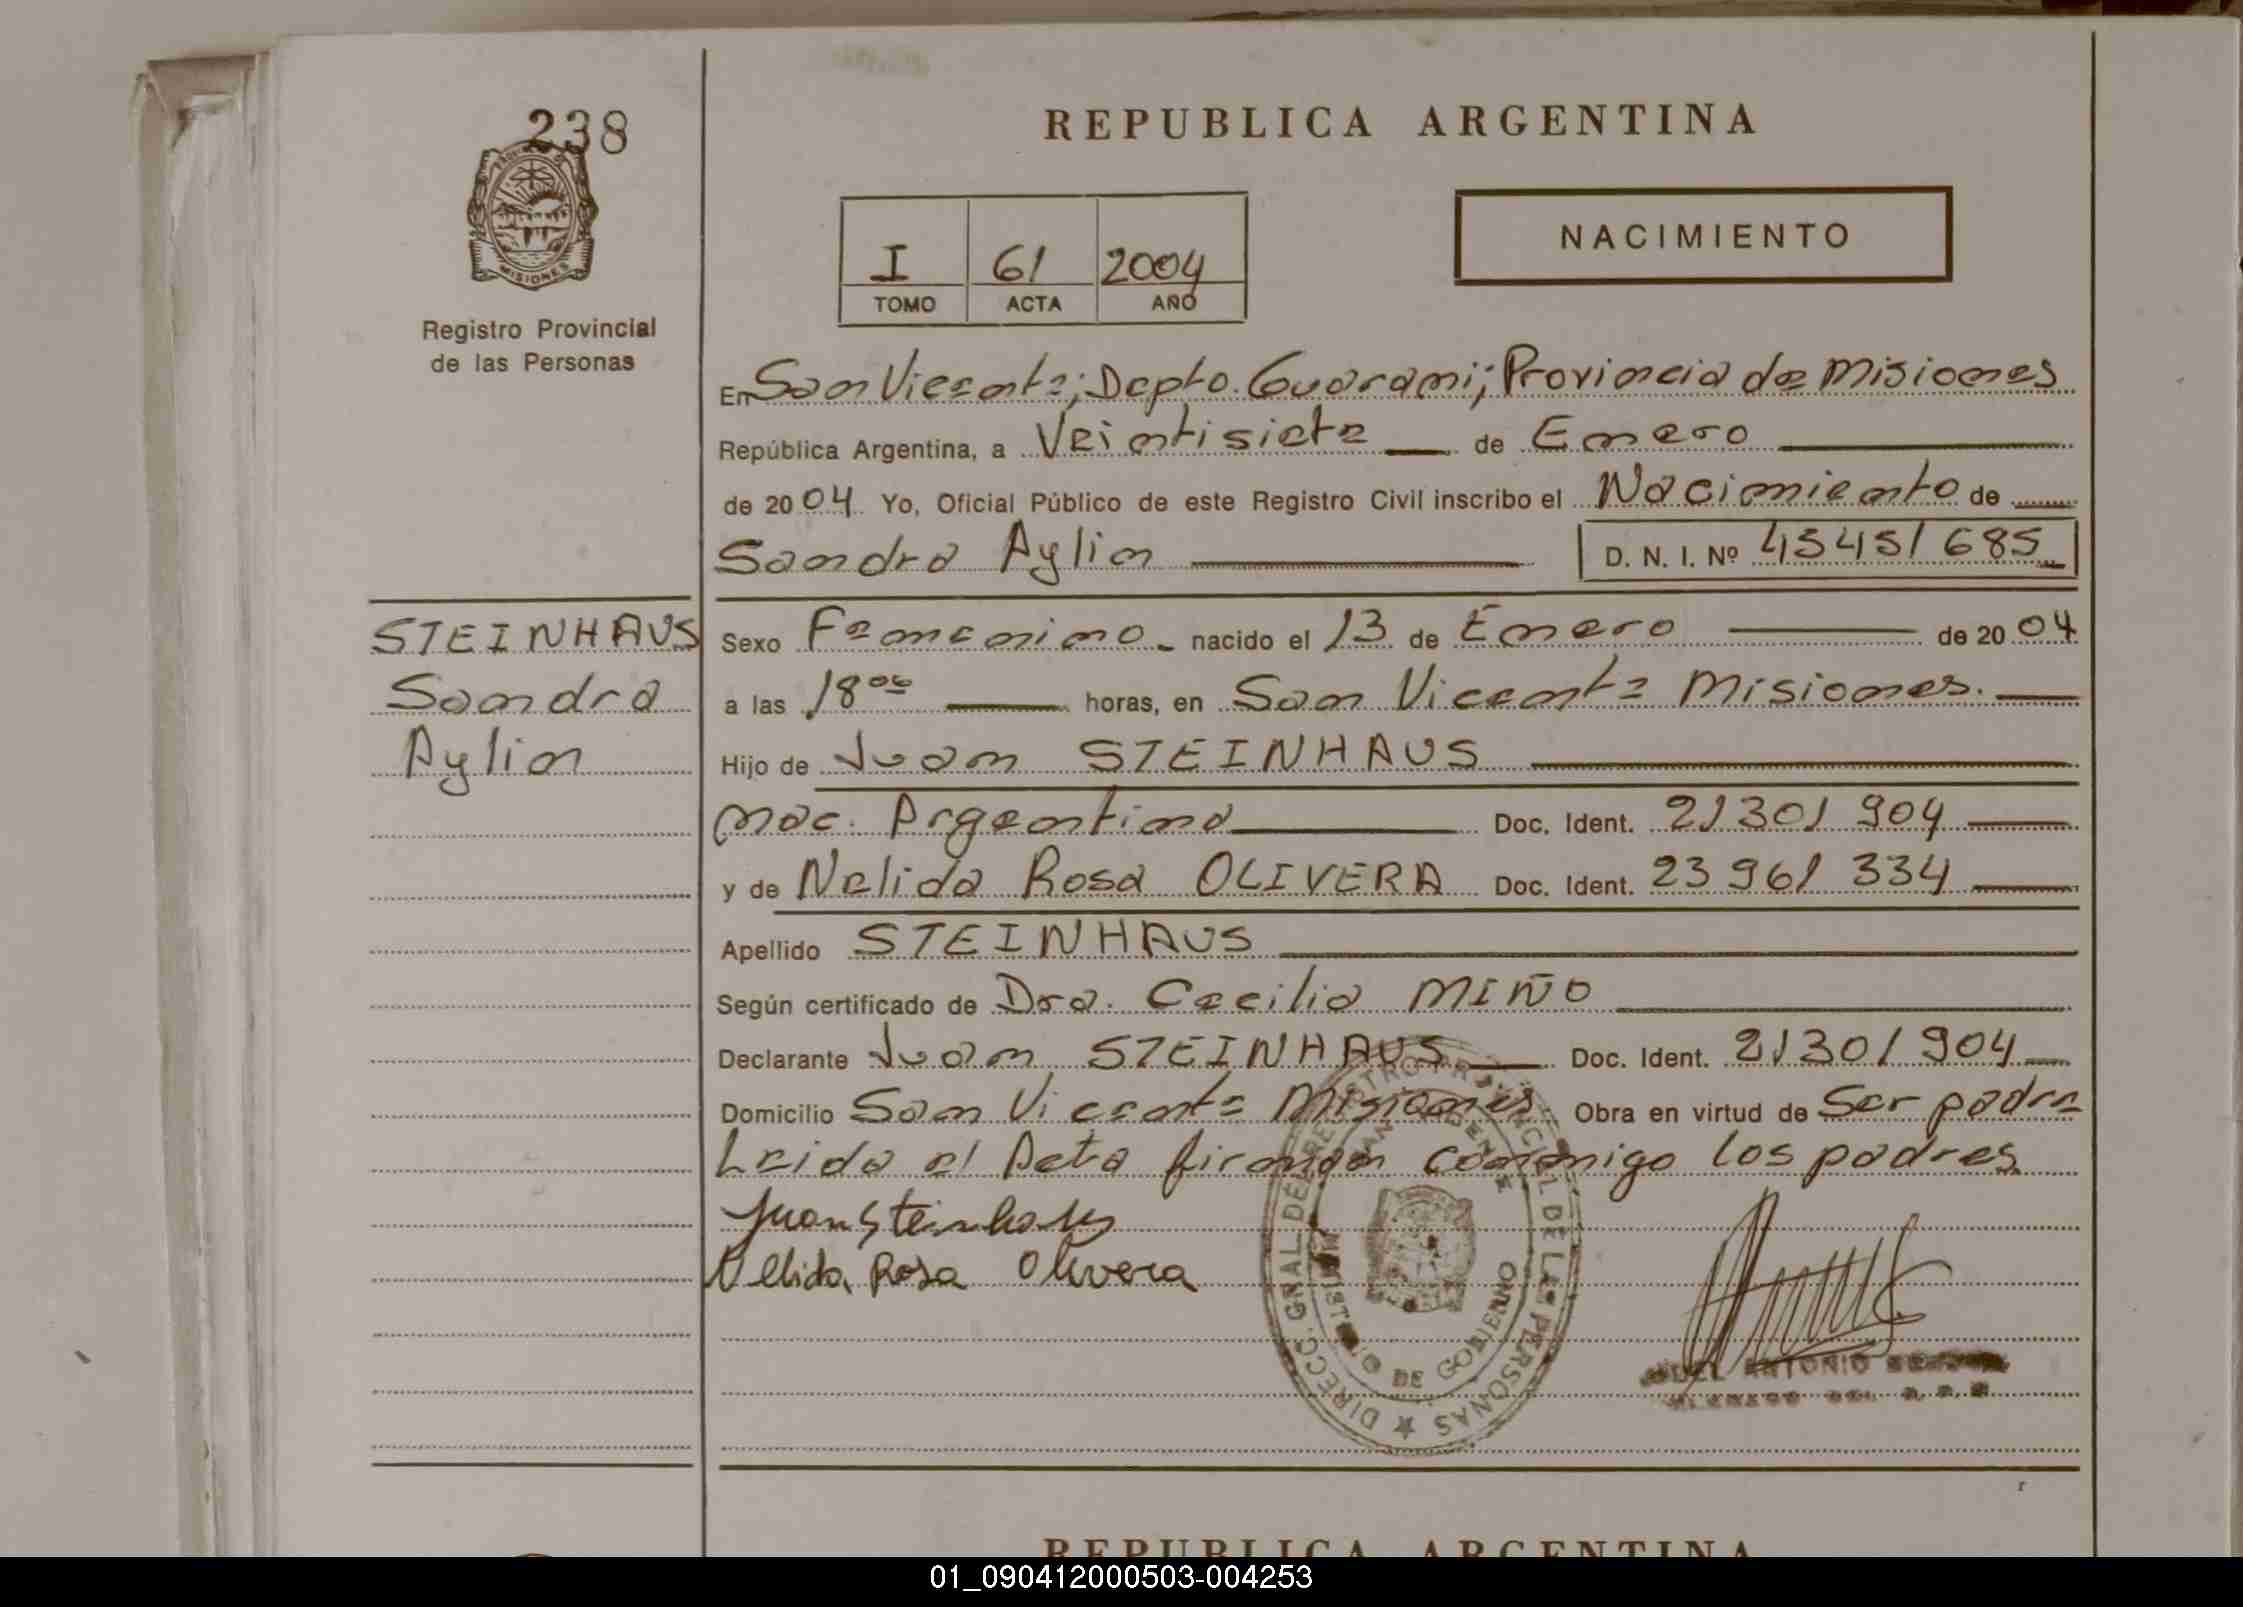 238
PROVINCIA DE
MISIONES
Registro Provincial
de las Personas
REPUBLICA ARGENTINA
I 61 2004
TOMO ACTA AÑO
NACIMIENTO
En San Vicente; Depto. Guarani; Provincia de Misiones
República Argentina, a Veintisiete de Enero
de 2004 Yo, Oficial Público de este Registro Civil inscribo el Nacimiento de
Sandra Aylin D. N. I. Nº 45451685
STEINHAUS
Sandra
Aylin
Sexo Femenino nacido el 13 de Enero de 2004
a las 18⁰⁰ horas, en San Vicente Misiones.
Hijo de Juan STEINHAUS
nac. Argentina Doc. Ident. 21301904
y de Nelida Rosa OLIVERA Doc. Ident. 23961334
Apellido STEINHAUS
Según certificado de Dra. Cecilia MIÑO
Declarante Juan STEINHAUS Doc. Ident. 21301904
Domicilio San Vicente Misiones. Obra en virtud de Ser padre
Leida el Acta firman conmigo los padres
Juan Steinhaus
Nelida Rosa Olivera
DIRECC. GRAL. DEL REGISTRO PROVINCIAL DE LAS PERSONAS
MINISTERIO DE GOBIERNO
ANTONIO
REPUBLICA ARGENTINA
01_090412000503-004253